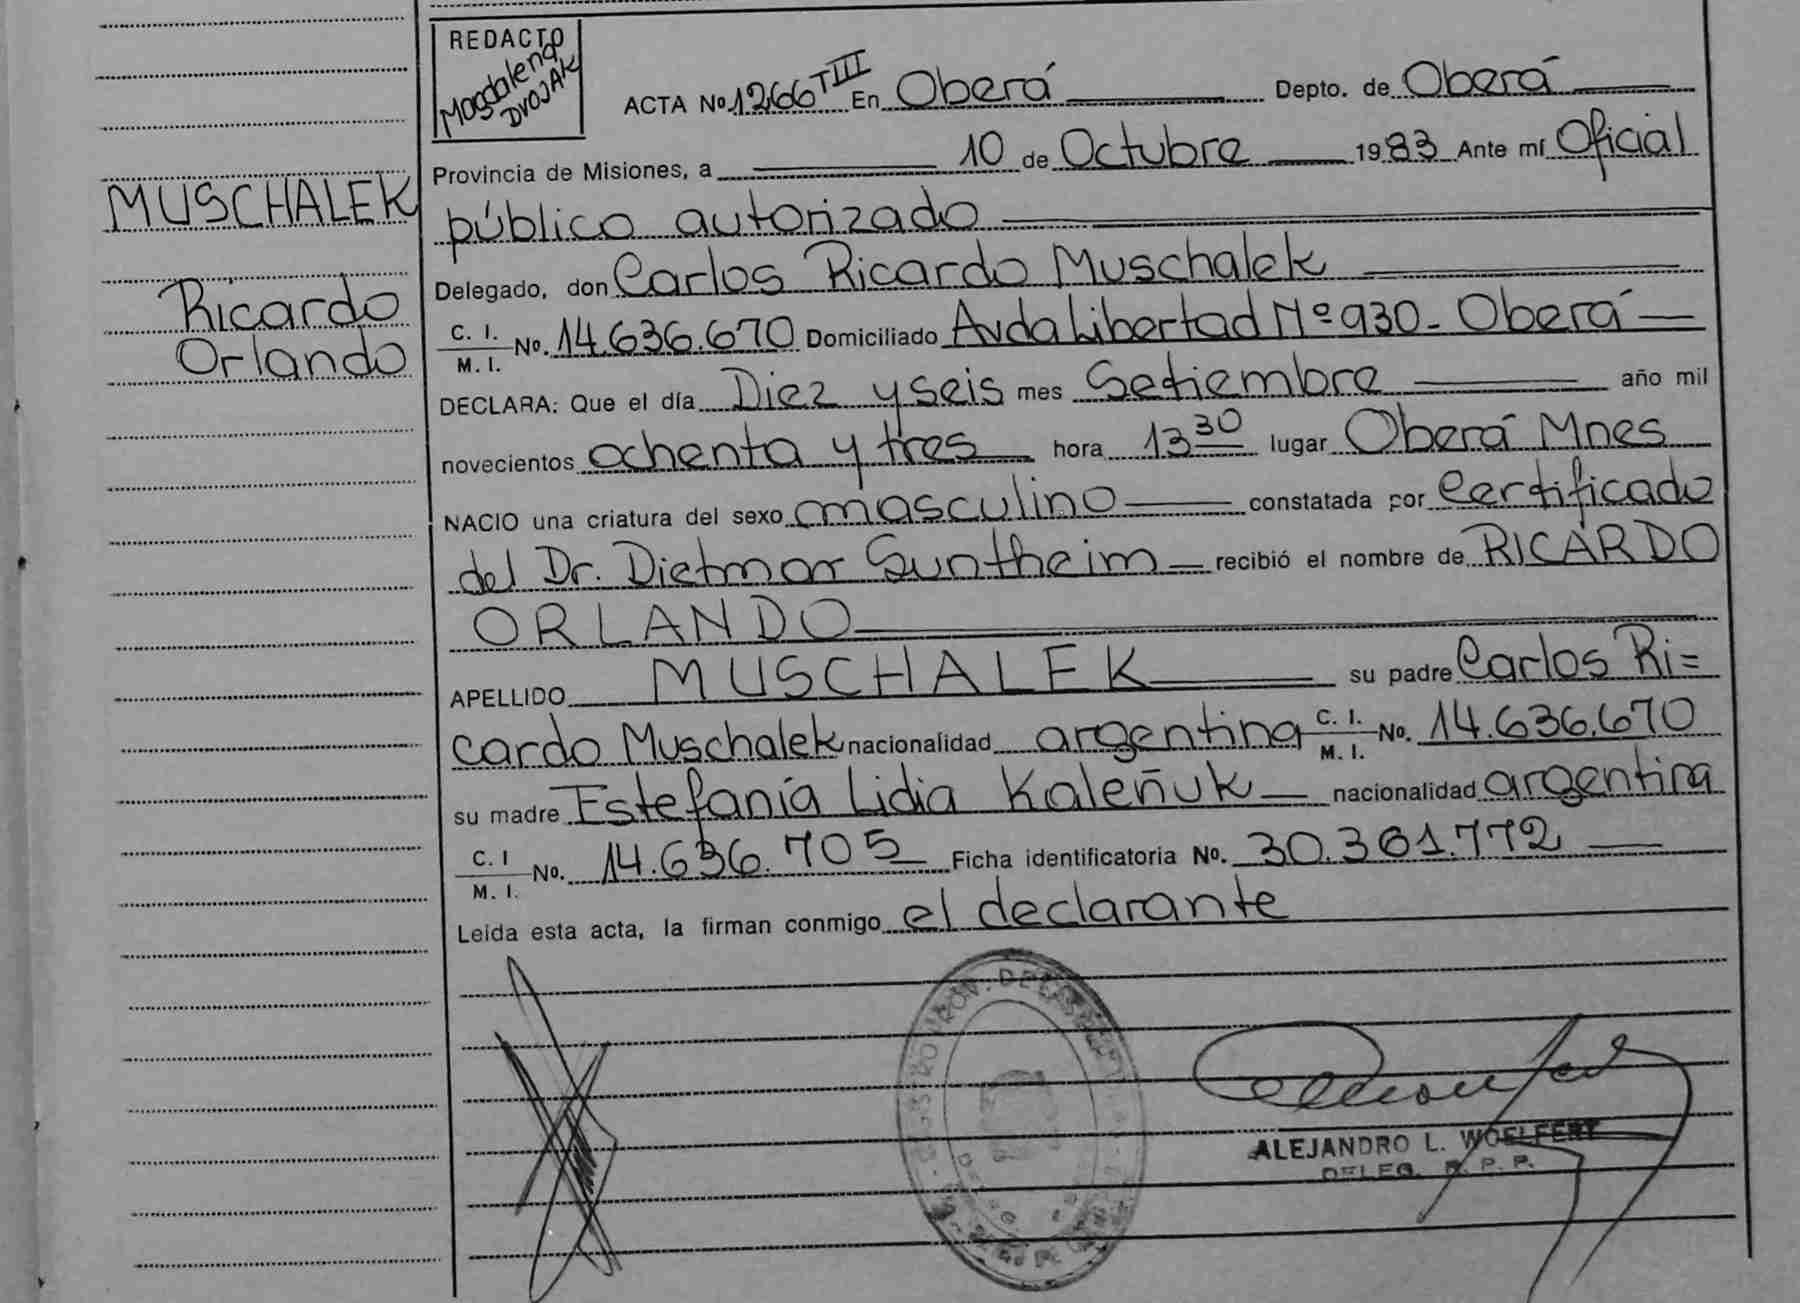 REDACTO
Magdalena
DVOJAK
ACTA No 1266 TIII En Oberá Depto. de Oberá
Provincia de Misiones, a 10 de Octubre 1983 Ante mí Oficial
público autorizado
MUSCHALEK
Ricardo
Orlando
Delegado, don Carlos Ricardo Muschalek
C. I.
M. I. No. 14.636.670 Domiciliado Avda Libertad Nº 930 - Oberá
DECLARA: Que el día Diez y seis mes Setiembre año mil
novecientos ochenta y tres hora 13 30 lugar Oberá Mnes
NACIO una criatura del sexo masculino constatada por Certificado
del Dr. Dietmar Suntheim recibió el nombre de RICARDO
ORLANDO
APELLIDO MUSCHALEK su padre Carlos Ri=
cardo Muschalek nacionalidad argentina C. I. M. I. No. 14.636.670
su madre Estefanía Lidia Kaleñuk nacionalidad argentina
C. I M. I. No. 14.636.705 Ficha identificatoria No. 30.361.772
Leída esta acta, la firman conmigo el declarante
ALEJANDRO L. WOELFERT
DELEG. R. P. P.